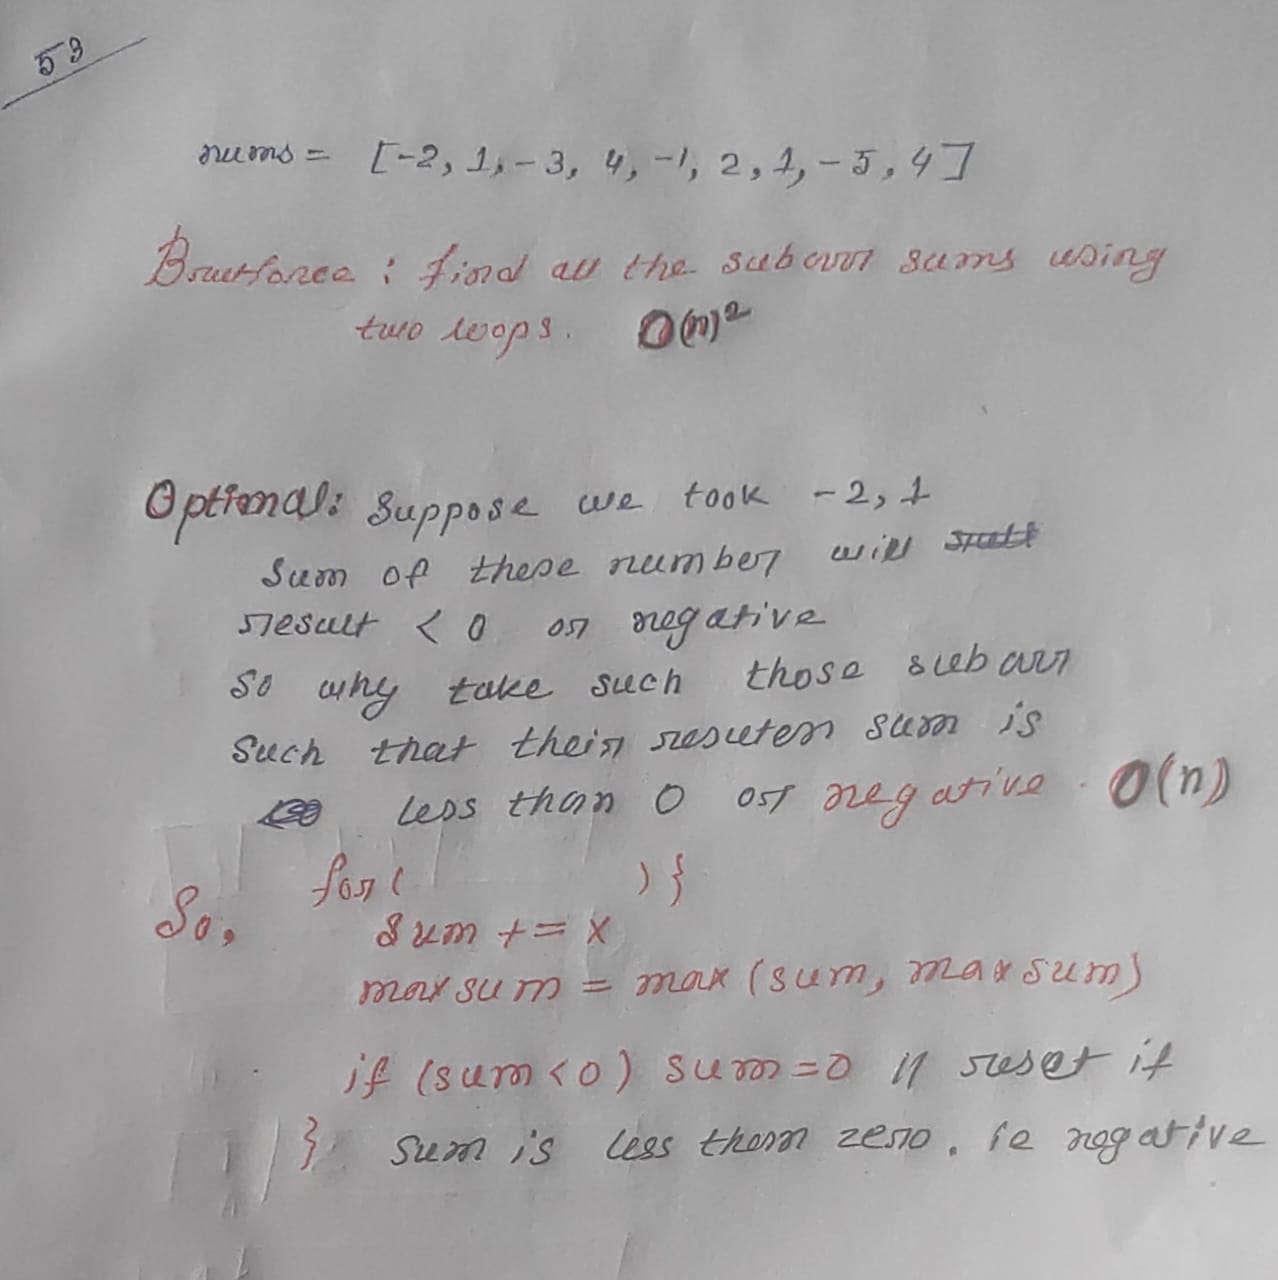 53
nums = [-2, 1, -3, 4, -1, 2, 1, -5, 4]
Bruteforce : find all the subarr sums using
two loops. O(n)²
Optimal: Suppose we took -2, 1
Sum of these number will
result < 0 or negative
So why take such those subarr
Such that their sum is
less than 0 or negative. O(n)
for( ) {
So, sum += x
maxsum = max (sum, maxsum)
if (sum<0) sum=0 // reset if
} sum is less than zero. ie negative